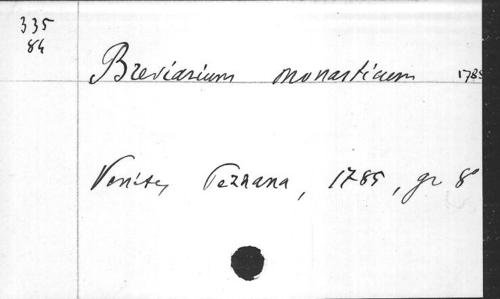 335
84
Breviarium monasticum 1785
Venise, Pezzana, 1785, gr 8°